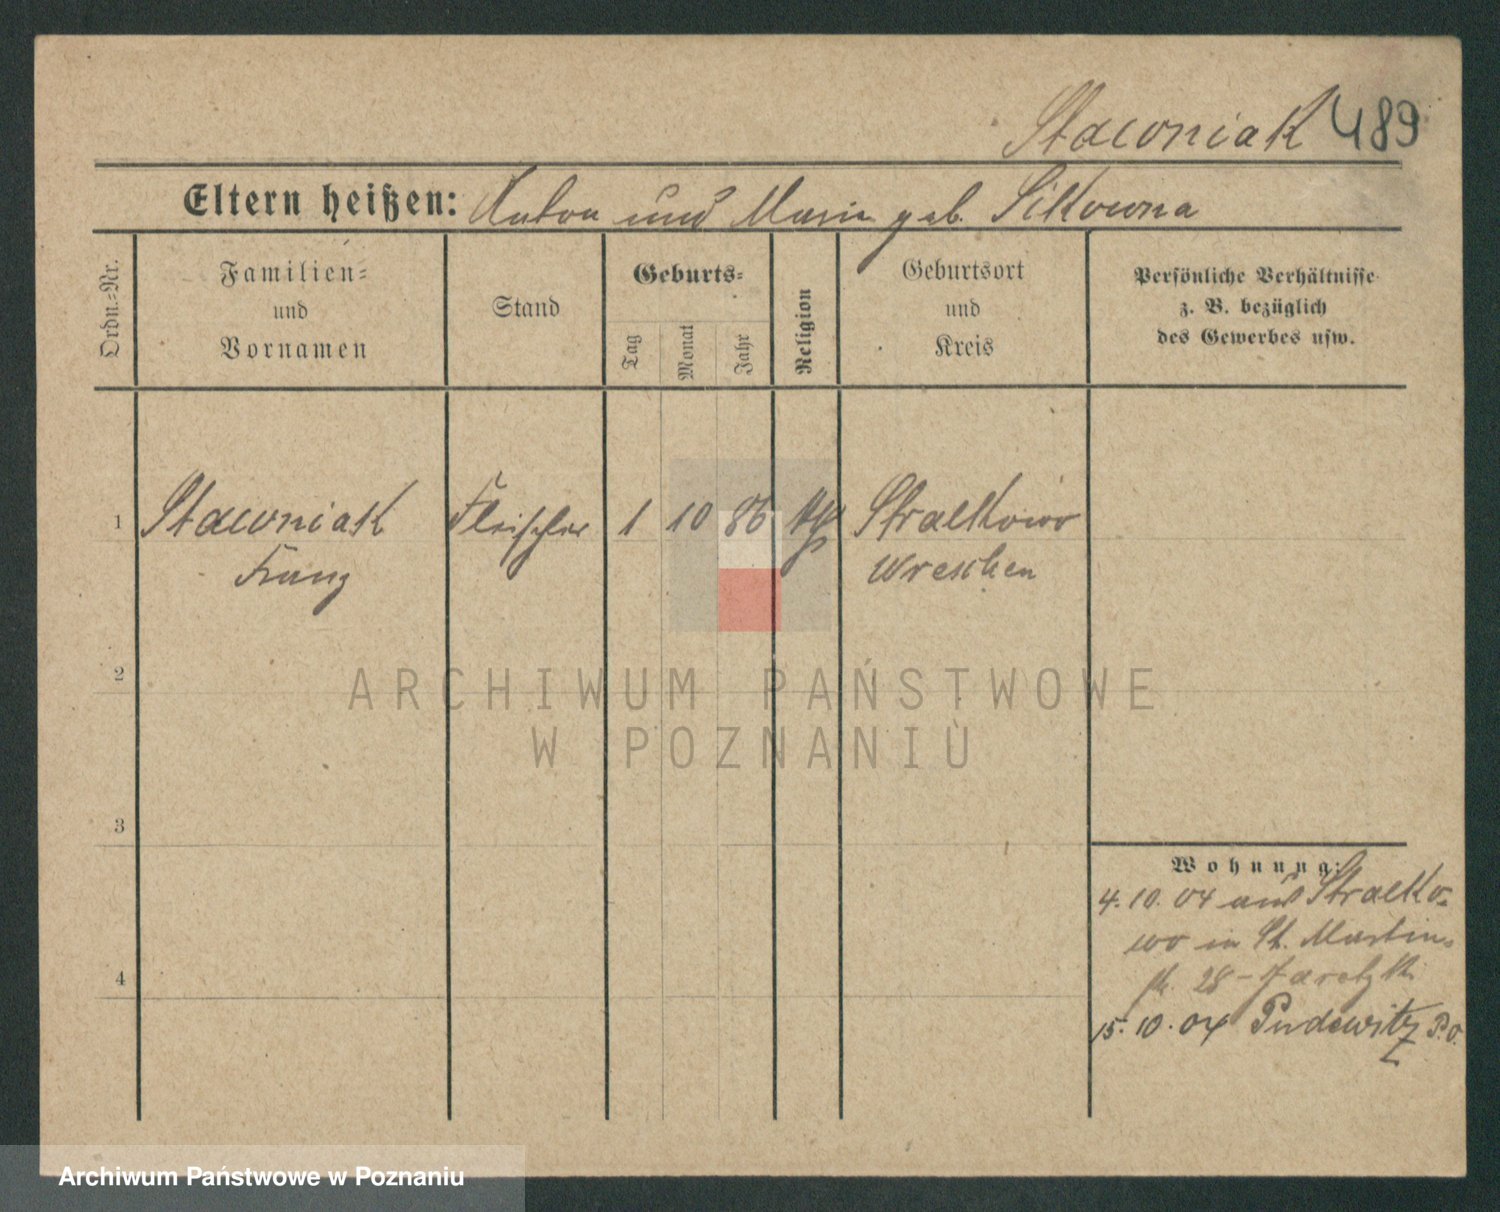 Stawniak 489
Eltern heißen: Anton und Marie geb. Sikowna
Ordn.=Nr.
Familien=
und
Vornamen
Stand
Geburts=
Tag
Monat
Jahr
Religion
Geburtsort
und
Kreis
Persönliche Verhältnisse
z. B. bezüglich
des Gewerbes usw.
1 Stawniak Fleischer 1 10 86 kth Stralkowo
Franz Wreschen
2
ARCHIWUM PAŃSTWOWE
W POZNANIU
3
Wohnung:
4. 10. 04 aus Stralko=
wo in St. Martin=
4 str. 28 -
15. 10. 04 Pudewitz P. O.
Archiwum Państwowe w Poznaniu